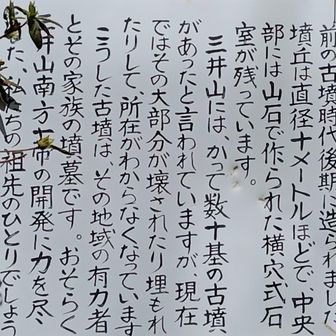 前の古墳時代後期に造られまし
墳丘は直径十メートルほどで、中央
部には山石で作られた横穴式石
室が残っています。
三井山には、かつて数十基の古墳
があったと言われていますが、現在
ではその大部分が壊されたり埋もれ
たりして、所在がわからなくなっています
こうした古墳は、その地域の有力者
とその家族の墳墓です。おそらく
井山南方一帯の開発に力を尽く
た、私たちの祖先のひとりでしょう